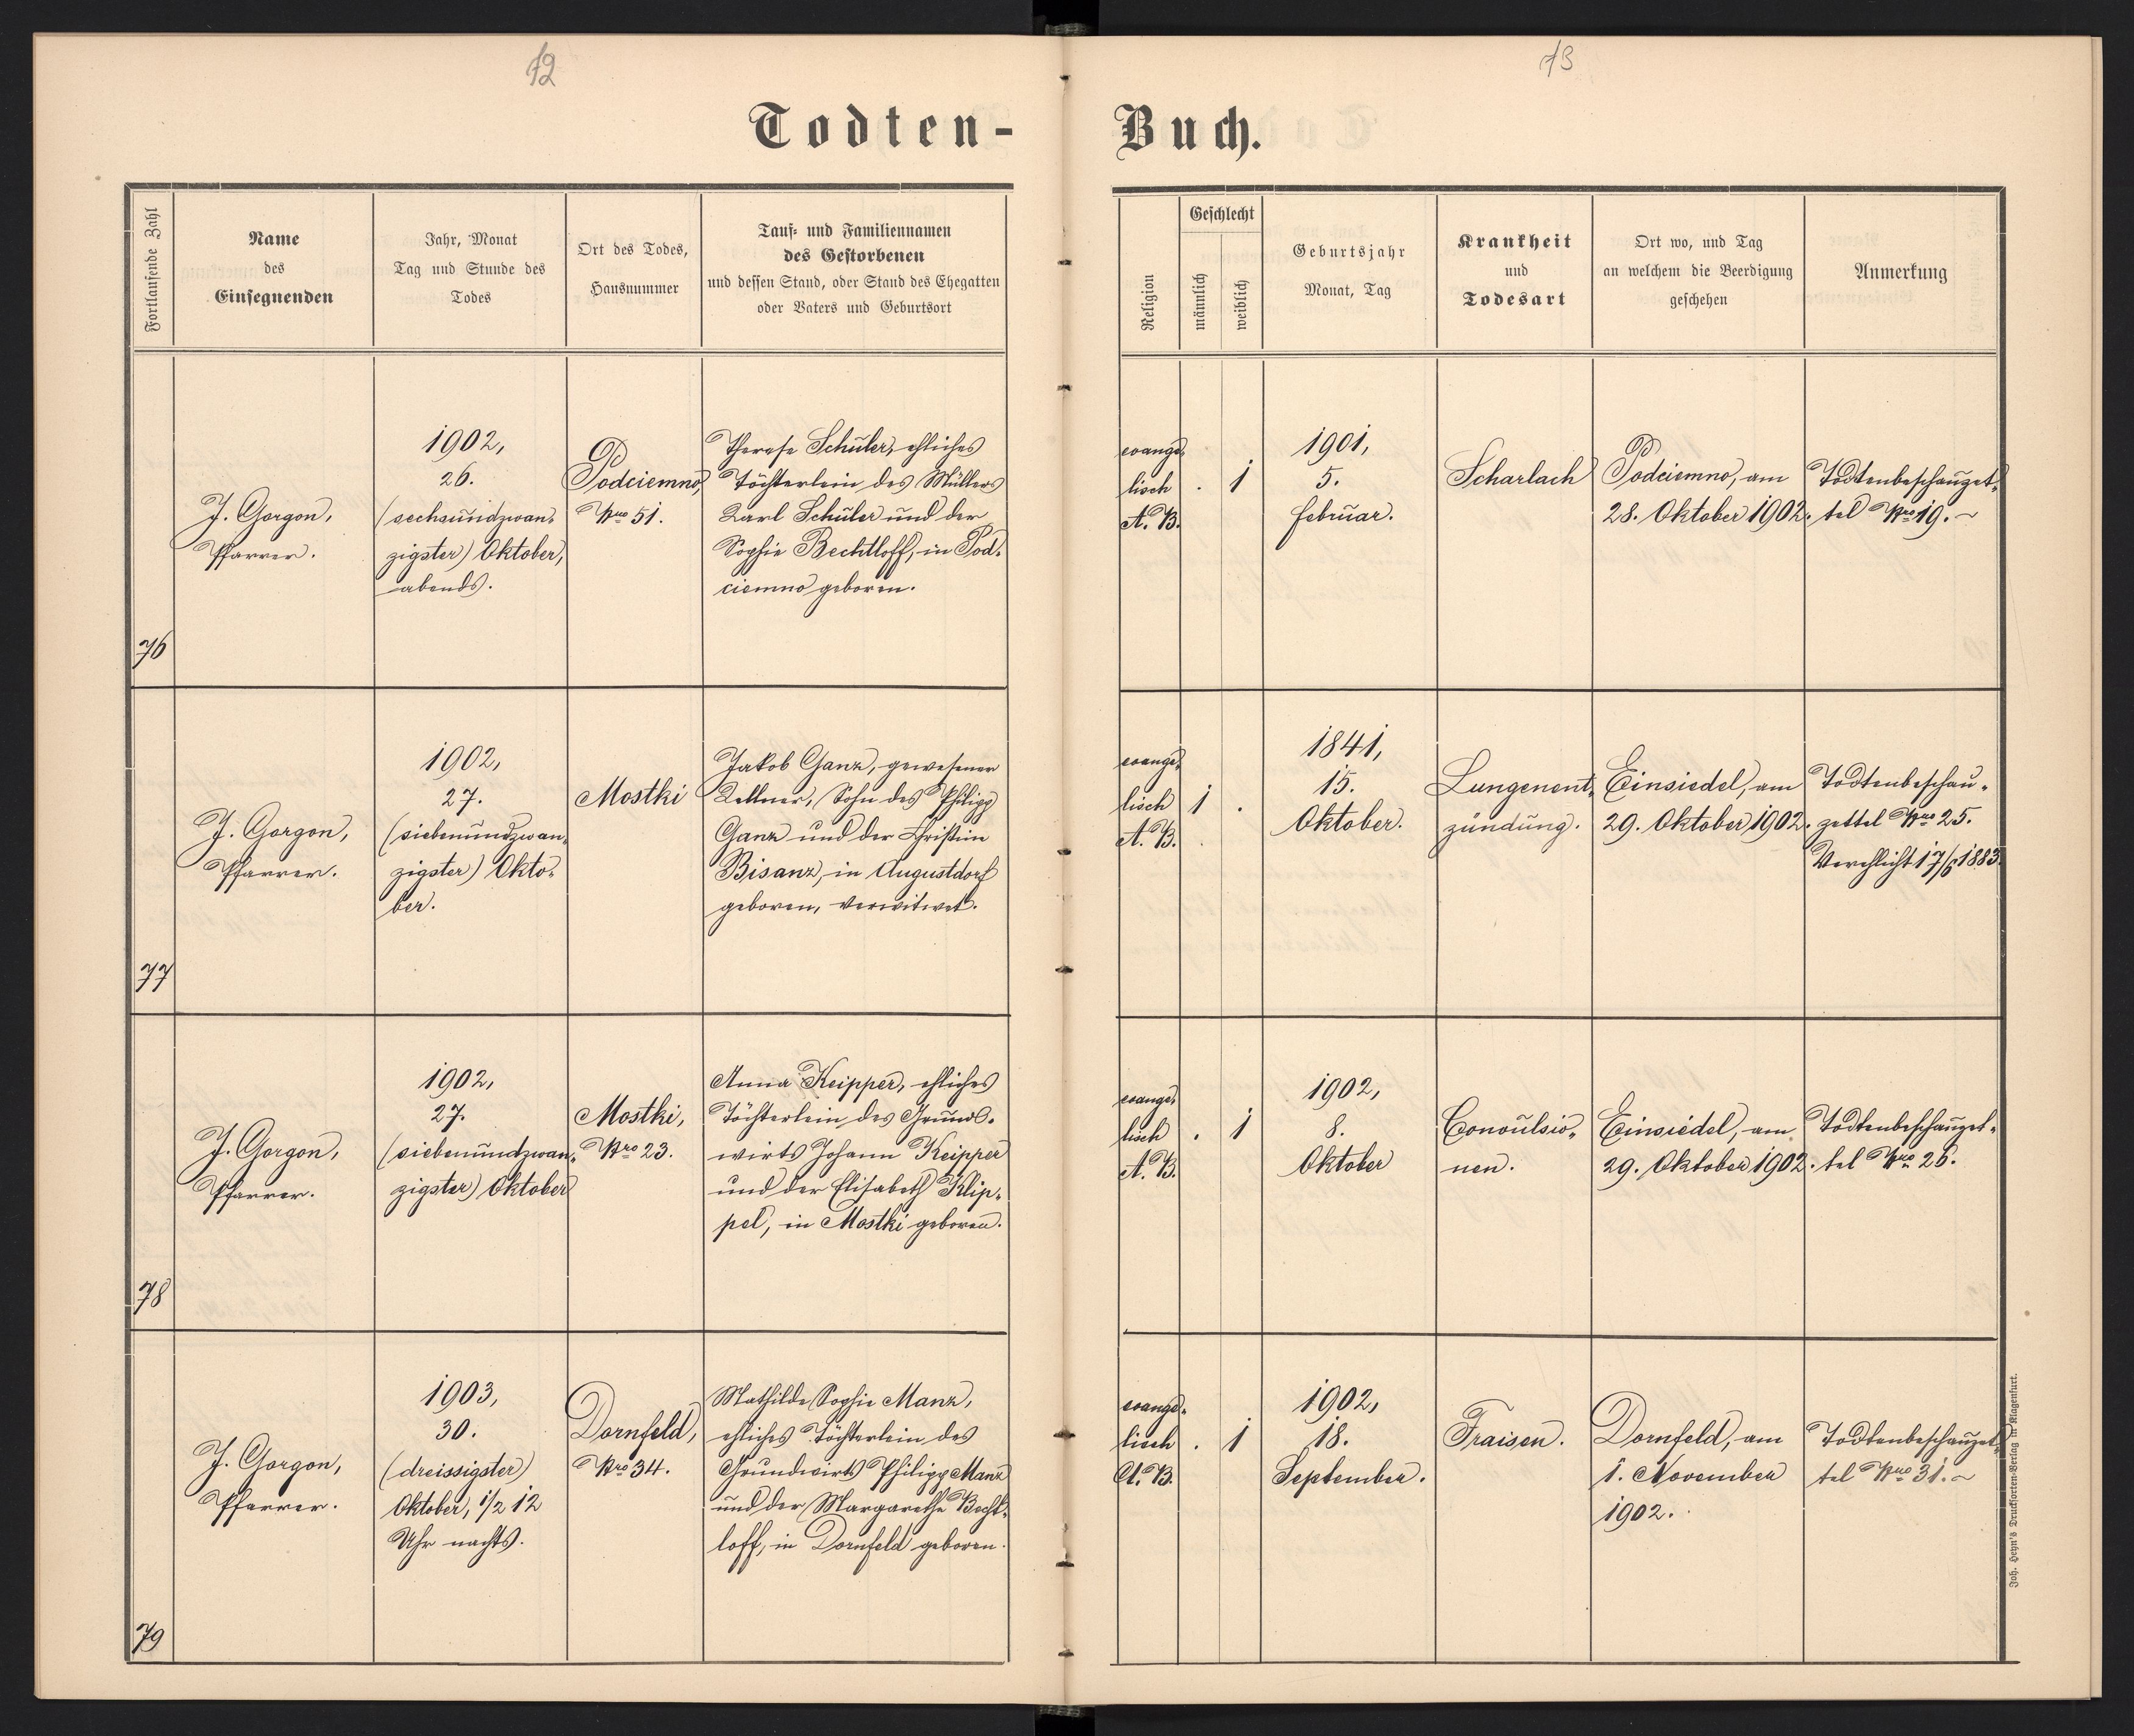 12
13
Todten-
Buch.
Fortlaufende Zahl
Name
des
Einsegnenden
Jahr, Monat
Tag und Stunde des
Todes
Ort des Todes,
Hausnummer
Tauf- und Familiennamen
des Gestorbenen
und dessen Stand, oder Stand des Ehegatten
oder Vaters und Geburtsort
Religion
Geschlecht
männlich
weiblich
Geburtsjahr
Monat, Tag
Krankheit
und
Todesart
Ort wo, und Tag
an welchem die Beerdigung
geschehen
Anmerkung
76
J. Gorgon,
Pfarrer.
1902,
26.
(sechsundzwan-
zigster) Oktober,
abends.
Podciemno,
Nro 51.
Therese Schuler, ehliches
Töchterlein des Müllers
Karl Schuler und der
Sophie Bechtloff, in Pod-
ciemno geboren.
evange-
lisch
A. B.
. 1
1901,
5.
Februar.
Scharlach
Podciemno, am
28. Oktober 1902.
Todtenbeschauzet-
tel Nro 19. ~
77
J. Gorgon,
Pfarrer.
1902,
27.
(siebenundzwan-
zigster) Okto-
ber.
Mostki
Jakob Ganz, gewesener
Kellner, Sohn des Philipp
Ganz und der Christine
Bisanz, in Augustdorf
geboren, verwitwet.
evange-
lisch
A. B.
1 .
1841,
15.
Oktober.
Lungenent-
zündung.
Einsiedel, am
29. Oktober 1902.
Todtenbeschau-
zettel Nro 25.
Verehlicht 17/6 1883
78
J. Gorgon,
Pfarrer.
1902,
27.
(siebenundzwan-
zigster) Oktober
Mostki,
Nro 23.
Anna Keipper, ehliches
Töchterlein des Grund-
wirts Johann Keipper
und der Elisabeth Klip-
pel, in Mostki geboren.
evange-
lisch
A. B.
. 1
1902,
8.
Oktober
Convulsio-
nen.
Einsiedel, am
29. Oktober 1902.
Todtenbeschauzet-
tel Nro 26.
79
J. Gorgon,
Pfarrer.
1903,
30.
(dreissigster)
Oktober, 1/2 12
Uhr nachts.
Dornfeld,
Nro 34.
Mathilde Sophie Manz,
ehliches Töchterlein des
Grundwirts Philipp Manz
und der Margarethe Becht-
loff, in Dornfeld geboren.
evange-
lisch
A. B.
. 1
1902,
18.
September.
Fraisen.
Dornfeld, am
1. November
1902.
Todtenbeschauzet-
tel Nro 31. ~
Joh. Heyn's Drucksorten-Verlag in Klagenfurt.